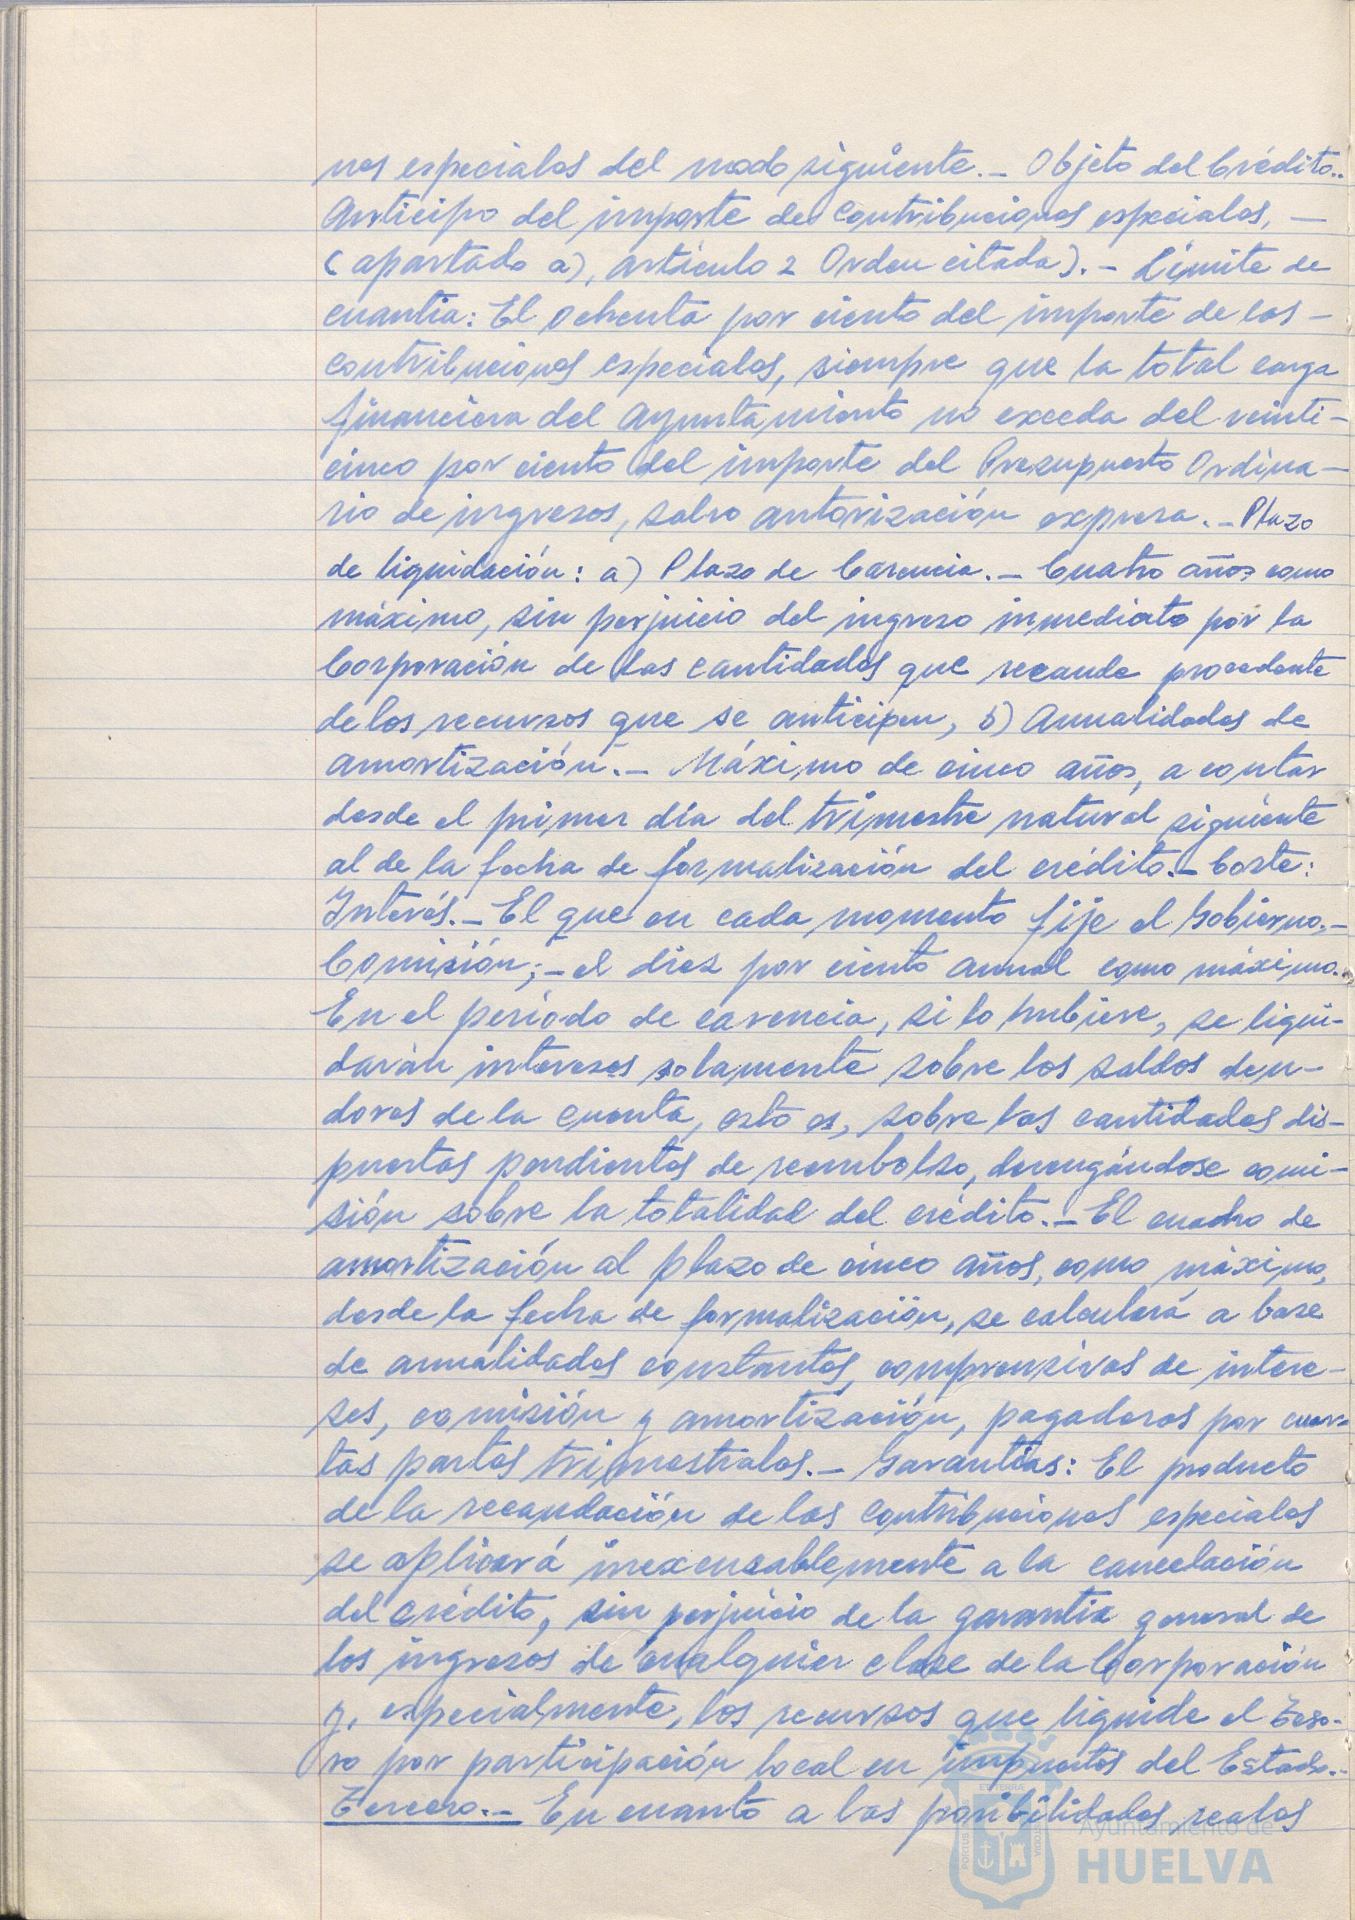 nes especiales del modo siguiente.- Objeto del Crédito..
Anticipo del importe de contribuciones especiales, -
(apartado a), artículo 2 Orden citada).- Límite de
cuantia: El ochenta por ciento del importe de las -
contribuciones especiales, siempre que la total carga
financiera del Ayuntamiento no exceda del veinti-
cinco por ciento del importe del Presupuesto Ordina-
rio de ingresos, salvo autorización expresa.- Plazo
de liquidación: a) Plazo de Carencia.- Cuatro años como
máximo, sin perjuicio del ingreso inmediato por la
Corporación de las cantidades que recaude procedente
de los recursos que se anticipen, b) Anualidades de
amortización.- Máximo de cinco años, a contar
desde el primer día del trimestre natural siguiente
al de la fecha de formalización del crédito.- Coste:
Interés.- El que en cada momento fije el Gobierno.-
Comisión;- el diez por ciento annal como máximo.-
En el período de carencia, si lo hubiere, se liqui-
darán intereses solamente sobre los saldos deu-
dores de la cuenta, esto es, sobre las cantidades dis-
puestas pendientes de reembolso, devengándose comi-
sión sobre la totalidad del crédito.- El cuadro de
amortización al plazo de cinco años, como máximo,
desde la fecha de formalización, se calculará a base
de anualidades constantes, comprensivas de intere-
ses, comisión y amortización, pagaderas por cuar-
tas partes trimestrales.- Garantías: El producto
de la recaudación de las contribuciones especiales
se aplicará inexcusablemente a la cancelación
del crédito, sin perjuicio de la garantía general de
los ingresos de cualquier clase de la Corporación
y, especialmente, los recursos que liquide el Teso-
ro por participación local en impuestos del Estado.-
Tercero.- En cuanto a las posibilidades reales
ET TERRÆ
PORTUS
CUSTODIA
Ayuntamiento de
HUELVA